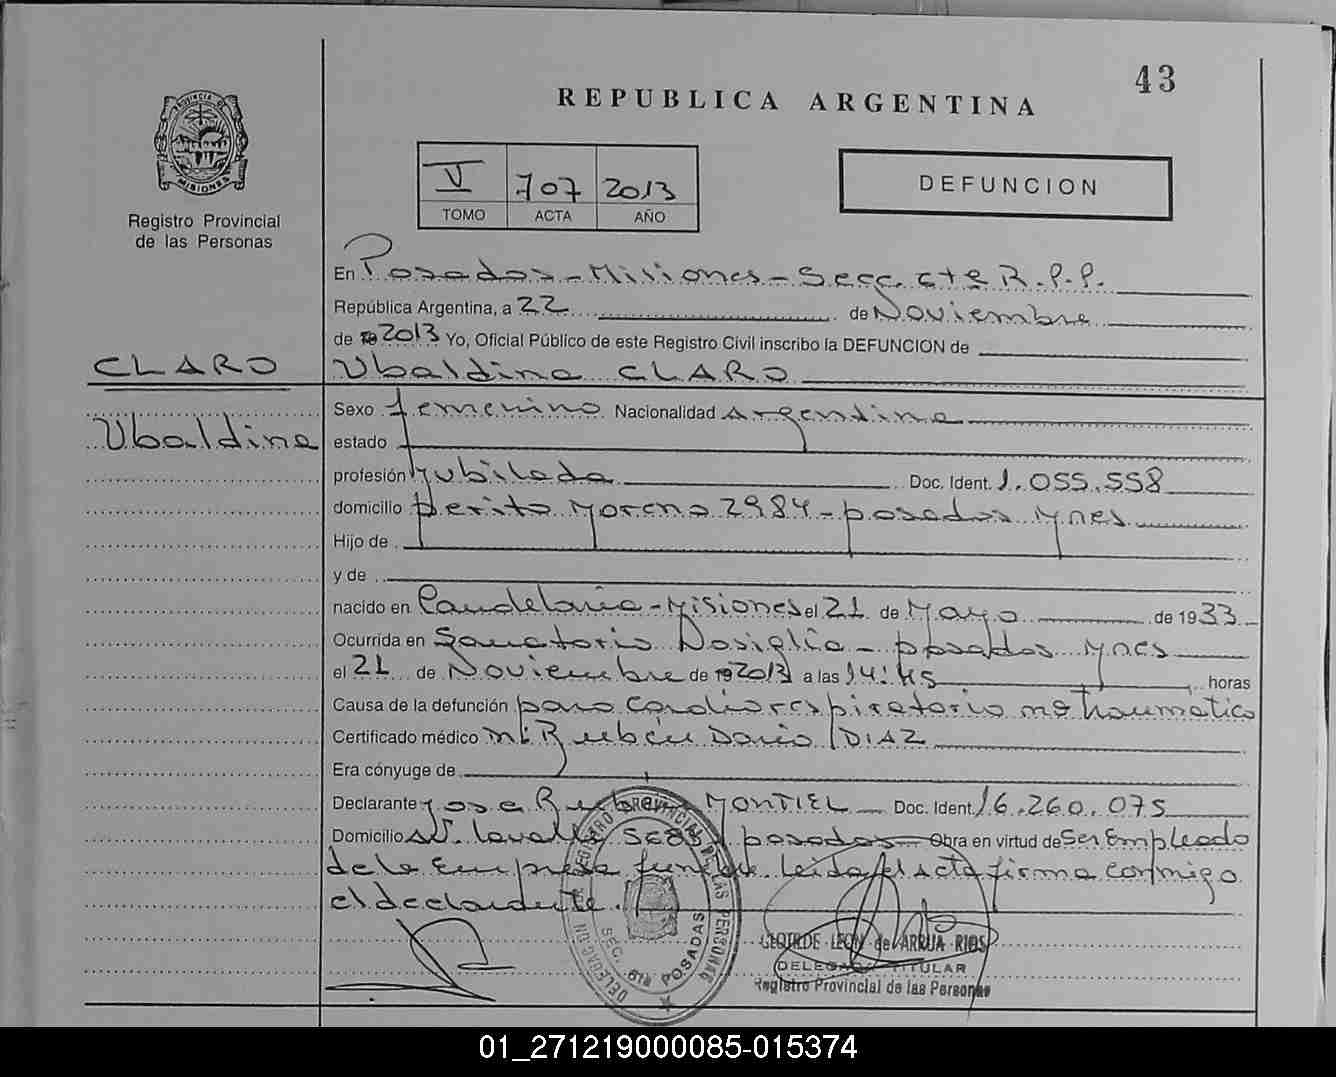 43
REPUBLICA ARGENTINA
PROVINCIA DE
MISIONES
Registro Provincial
de las Personas
V 707 2013
TOMO ACTA AÑO
DEFUNCION
En Posadas - Misiones - Secc. 6ta R.P.P.
República Argentina, a 22 de Noviembre
de 2013 Yo, Oficial Público de este Registro Civil inscribo la DEFUNCION de
CLARO
Ubaldina CLARO
Sexo femenino Nacionalidad Argentina
Ubaldina
estado
profesión Jubilada Doc. Ident. 1.055.558
domicilio Perito Moreno 2984 - posadas Mnes
Hijo de
y de
nacido en Candelaria - Misiones el 21 de Mayo de 1933
Ocurrida en Sanatorio Nosiglia - posadas Mnes
el 21 de Noviembre de 2013 a las 14:45 horas
Causa de la defunción paro cardiorespiratorio no traumatico
Certificado médico M. Rubén Dario DIAZ
Era cónyuge de
Declarante Jose Ruben MONTIEL Doc. Ident. 16.260.075
Domicilio Av. Lavalle posadas Obra en virtud de Ser Empleado
de la Empresa funebre. Leida el Acta firma conmigo
el declarante.
REGISTRO PROVINCIAL DE LAS PERSONAS
DELEGACION
SEC. 6ta POSADAS
CLOTILDE LEON de ARRUA RIOS
DELEGADA TITULAR
Registro Provincial de las Personas
01_271219000085-015374